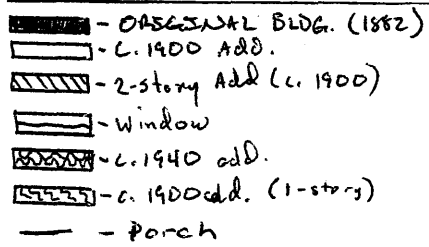 - ORIGINAL BLDG. (1882)
- C. 1900 Add.
- 2-story Add (c. 1900)
- Window
- c. 1940 add.
- c. 1900 add. (1-story)
- Porch